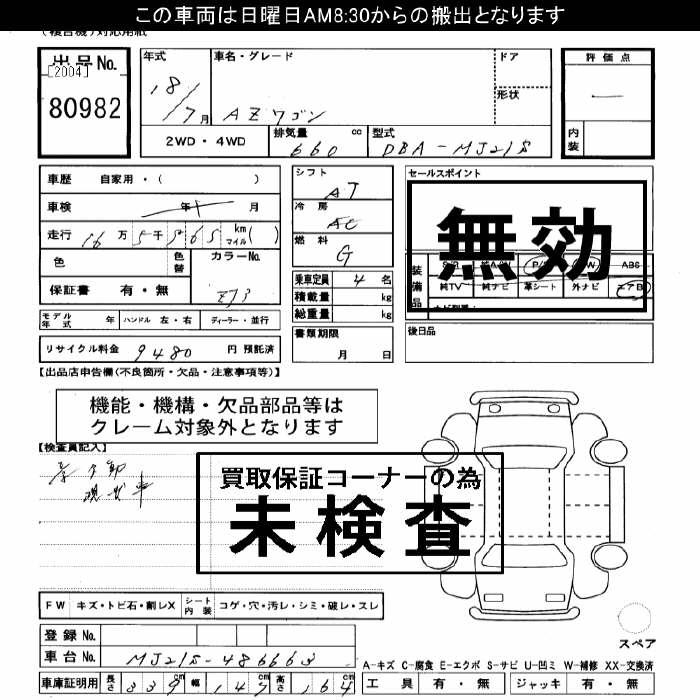 この車両は日曜日AM8:30からの搬出となります
(複合機)対応用紙
出品No. [2004] 80982
年式 18/7月
車名・グレード AZワゴン
ドア
形状
評価点 —
内装
2WD・4WD
排気量 660 cc
型式 DBA-MJ21S
車歴 自家用・( )
車検 年 月
走行 16万5千565 km マイル( )
色 色替
カラーNo. ZJ3
保証書 有・無
シフト AT
冷房 AC
燃料 G
乗車定員 4名
積載量 kg
総重量 kg
書類期限 月 日
セールスポイント
無効
装備品
ABS
純TV 純ナビ 革シート 外ナビ エアB
後日品
モデル年式 年 ハンドル 左・右 ディーラー・並行
リサイクル料金 9480 円 預託済
【出品店申告欄(不良箇所・欠品・注意事項等)】
機能・機構・欠品部品等は
クレーム対象外となります
【検査員記入】
買取保証コーナーの為
未検査
FW キズ・トビ石・割レX シート内装 コゲ・穴・汚レ・シミ・破レ・スレ
登録No.
車台No. MJ21S-486663
車庫証明用 長さ 339cm 幅 147cm 高さ 164cm
スペア
A-キズ C-腐食 E-エクボ S-サビ U-凹ミ W-補修 XX-交換済
工具 有・無 ジャッキ 有・無